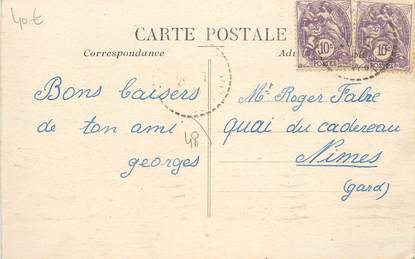 40€
CARTE POSTALE
Correspondance
10c 10c
Bons baisers
de ton ami
georges
48
Mr Roger Fabre
quai du cadereau
Nimes
(gard)